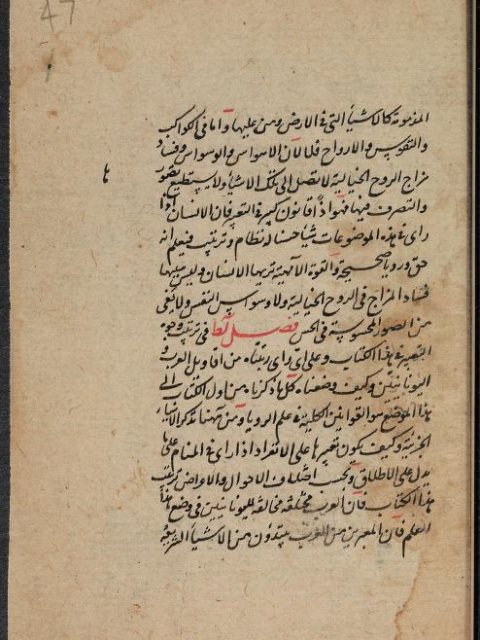 47
المذمومة كالاشياء التى فى الارض ومن عليها واما فى الكواكب
والنفوس والارواح فلا لان الاسواس والوسواس وفساد
مزاج الروح الخيالية لا تصل الى تلك الاشياء ولا يستطيع تصور
ها
والتصرف فيها فهو اذا قانون كبير فى التعبير فان الانسان اذا
راى فى هذه الموضوعات شيا حسنا له نظام وترتيب فيعلم انه
حق ورويا صحيحة والقوة الالهية تريها الانسان وليس سببها
فساد المزاج فى الروح الخيالية ولا وسواس النفس ولا بقى
من الصور المحسوسة فى الحس فصل فى ترتيب وجوه
التعبير فى هذا الكتاب وعلى اى راى رتبناه من اقاويل العرب و
اليونانيين وكيف وضعناه كل ما ذكرناه من اول الكتاب الى
هذا الموضع هو القوانين الكلية فى علم الرويا ومن ههنا نذكر الاشياء
الجزئية وكيف يكون تعبيرها على الانفراد اذا راى فى المنام على ما
يدل على الاطلاق وبحسب اختلاف الاحوال والاعراض ترتيب
هذا الكتاب فان العرب مختلفة مخالفة لليونانيين فى وضع هذا
العلم فان المعبرين من العرب يبتدؤن من الاشياء الشريفة